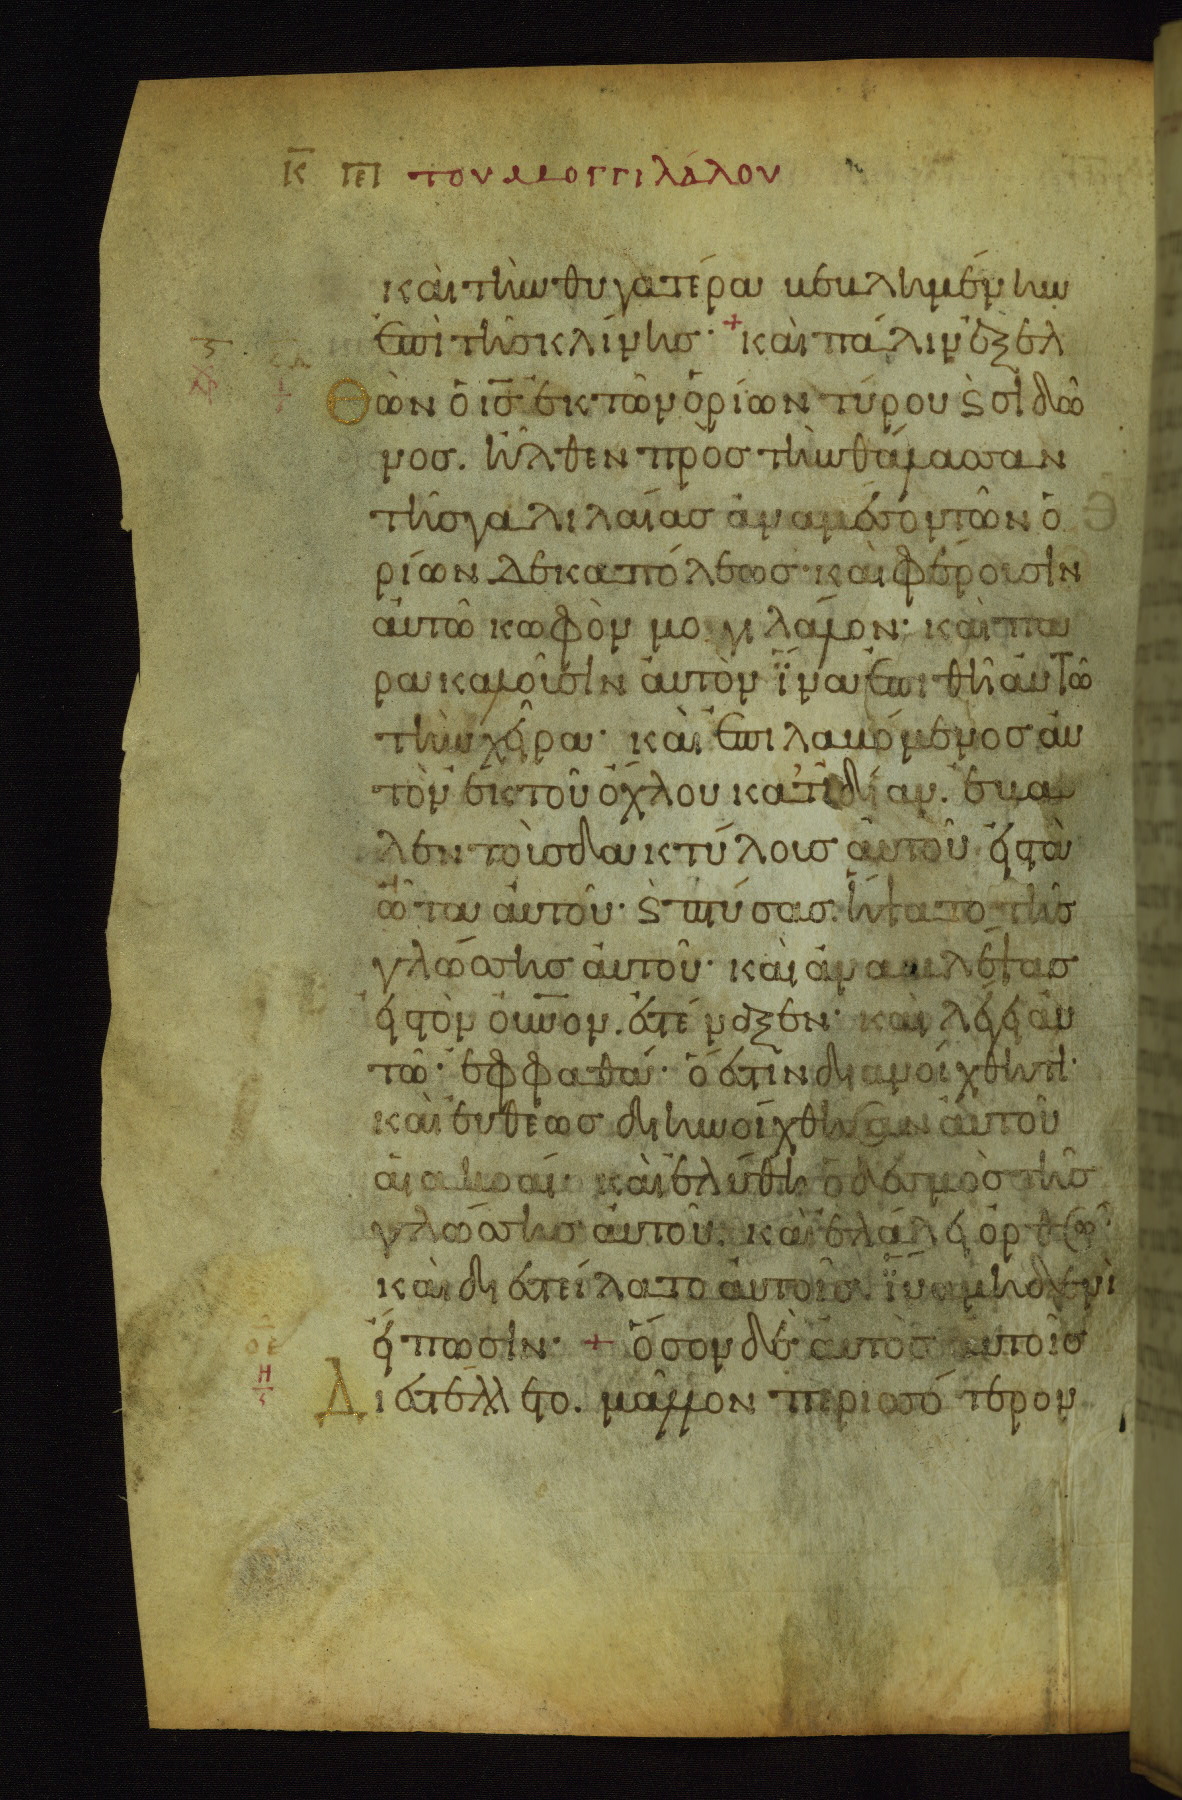 κ̅ πε̅ρι του μογγιλάλου
καὶ τὴν θυγατέρα βεβλημένην
ἐπὶ τῆς κλίνης· + καὶ πάλιν ἐξελ
θὼν ὁ ι̅ς̅ ἐκ τῶν ὁρίων τύρου ϗ σιδῶ
νος. ἦλθεν πρὸς τὴν θάλασσαν
τῆς γαλιλαίας ἀναμέσον τῶν ὁ
ρίων δεκαπόλεως· καὶ φέρουσιν
αὐτῶ κωφὸν μογιλάλον· καὶ πα
ρακαλοῦσιν αὐτὸν ἵνα ἐπιθῆ αὐτῶ
τὴν χεῖρα· καὶ ἐπιλαβόμενος αὐ
τὸν ἐκ τοῦ ὄχλου κατ' ἰδίαν. ἔβα
λεν τοὺς δακτύλους αὐτοῦ εἰς τὰ
ὦτα αὐτοῦ· ϗ πτύσας. ἥψατο τῆς
γλώσσης αὐτοῦ· καὶ ἀναβλέψας
εἰς τὸν ο̅υ̅νο̅ν. ἐστέναξεν· καὶ λέγει αὐ
τῶ· ἐφφαθά· ὅ ἐστιν διανοίχθητι·
καὶ εὐθέως διηνοίχθησαν αὐτοῦ
αἱ ἀκοαί· καὶ ἐλύθη ὁ δεσμὸς τῆς
γλώσσης αὐτοῦ. καὶ ἐλάλει ὀρθῶς·
καὶ διεστείλατο αὐτοῖς. ἵνα μηδενὶ
εἴπωσιν· + ὅσον δὲ αὐτὸς αὐτοῖς
Διεστέλλετο. μᾶλλον περισσότερον